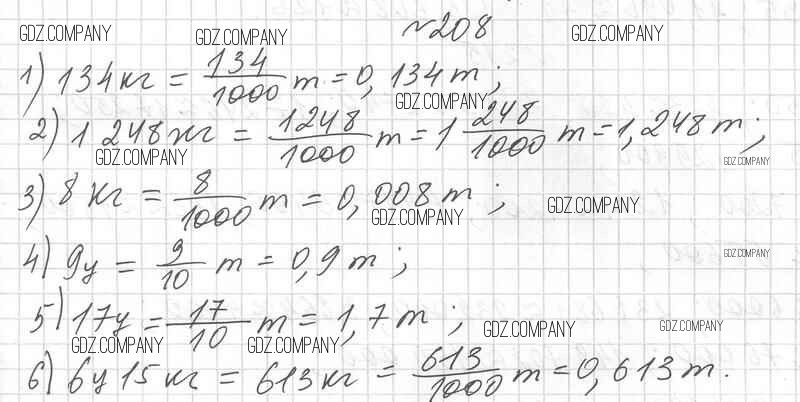 №208
GDZ.COMPANY GDZ.COMPANY GDZ.COMPANY
1) 134кг = 134/1000 т = 0,134т;
GDZ.COMPANY
2) 1 248кг = 1248/1000 т = 1 248/1000 т = 1,248т;
GDZ.COMPANY GDZ.COMPANY
3) 8 кг = 8/1000 т = 0,008т;
GDZ.COMPANY GDZ.COMPANY
4) 9ц = 9/10 т = 0,9т;
GDZ.COMPANY
5) 17ц = 17/10 т = 1,7т;
GDZ.COMPANY GDZ.COMPANY GDZ.COMPANY GDZ.COMPANY
6) 6ц 15 кг = 613кг = 613/1000 т = 0,613т.